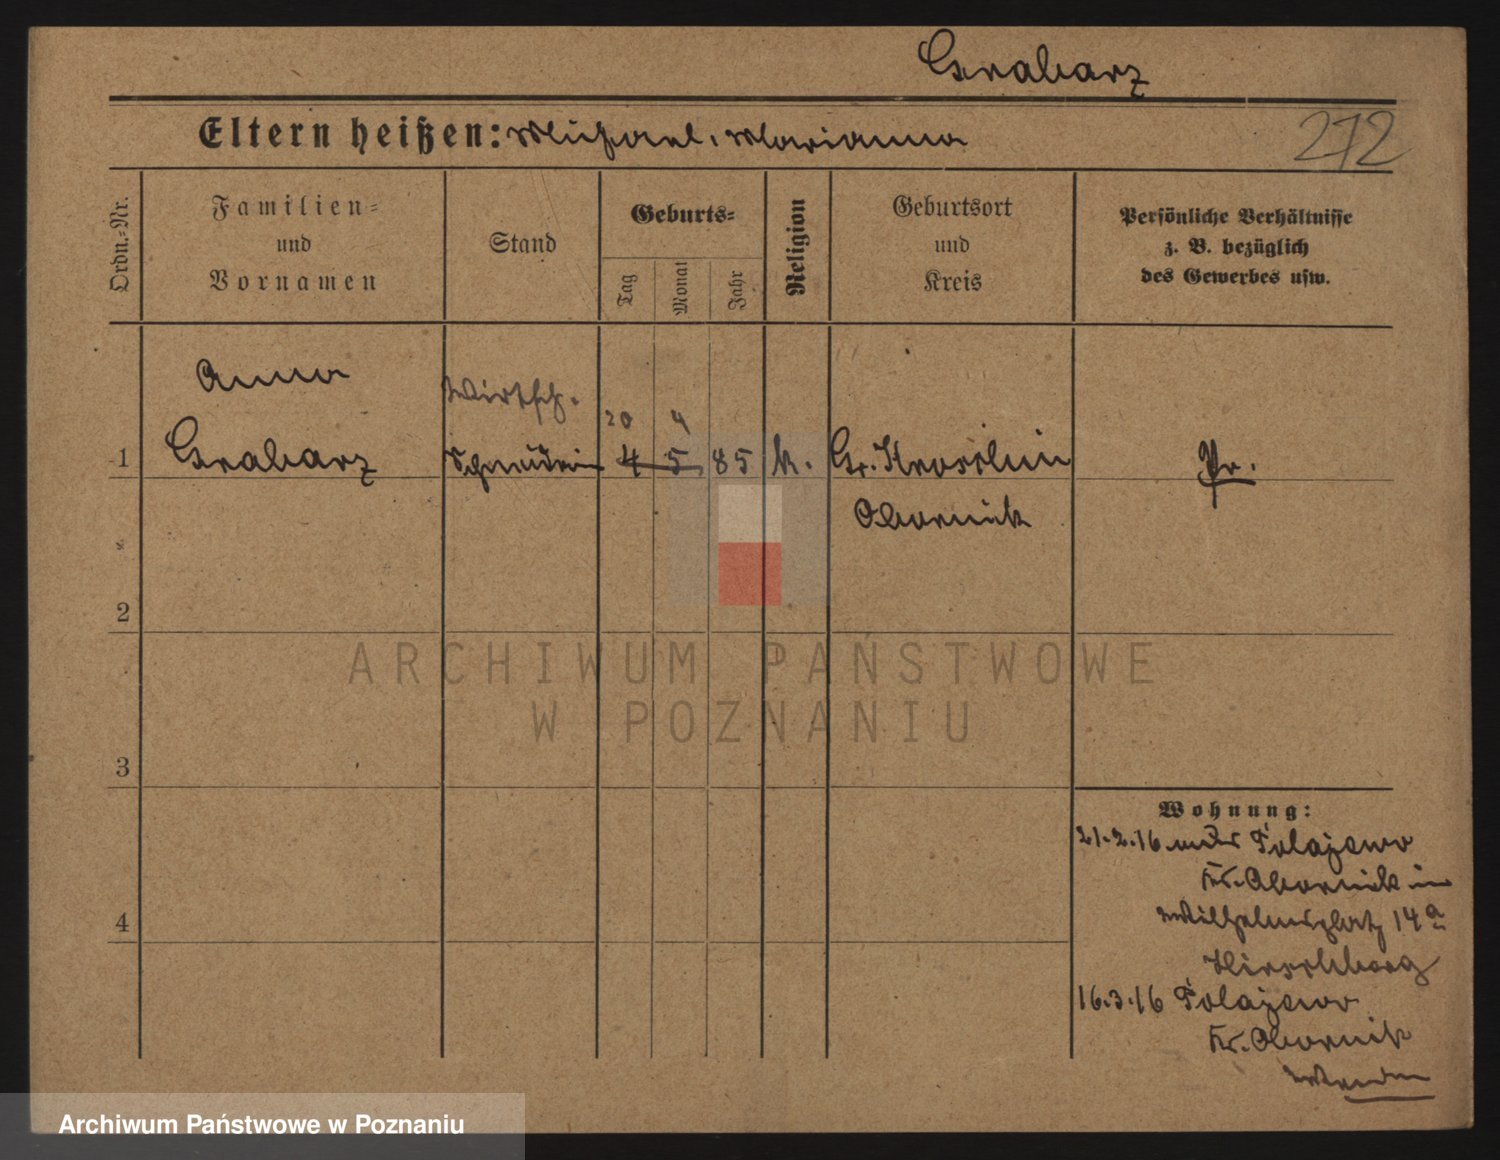 Grabarz
Eltern heißen: Michael, Marianna
272
Ordn.-Nr.
Familien-
und
Vornamen
Stand
Geburts-
Tag
Monat
Jahr
Religion
Geburtsort
und
Kreis
Persönliche Verhältnisse
z. B. bezüglich
des Gewerbes usw.
Anna
Wirtsch.
20 4
1 Grabarz Schneiderin 4 5 85 k. Gr. Kroschin Pr.
Obornik
2
3
4
Wohnung:
21.2.16 Polajewo
Kr. Obornik in
Wilhelmsplatz 14a
Hirschberg
16.3.16 Polajewo
Kr. Obornik
ARCHIWUM PAŃSTWOWE
W POZNANIU
Archiwum Państwowe w Poznaniu